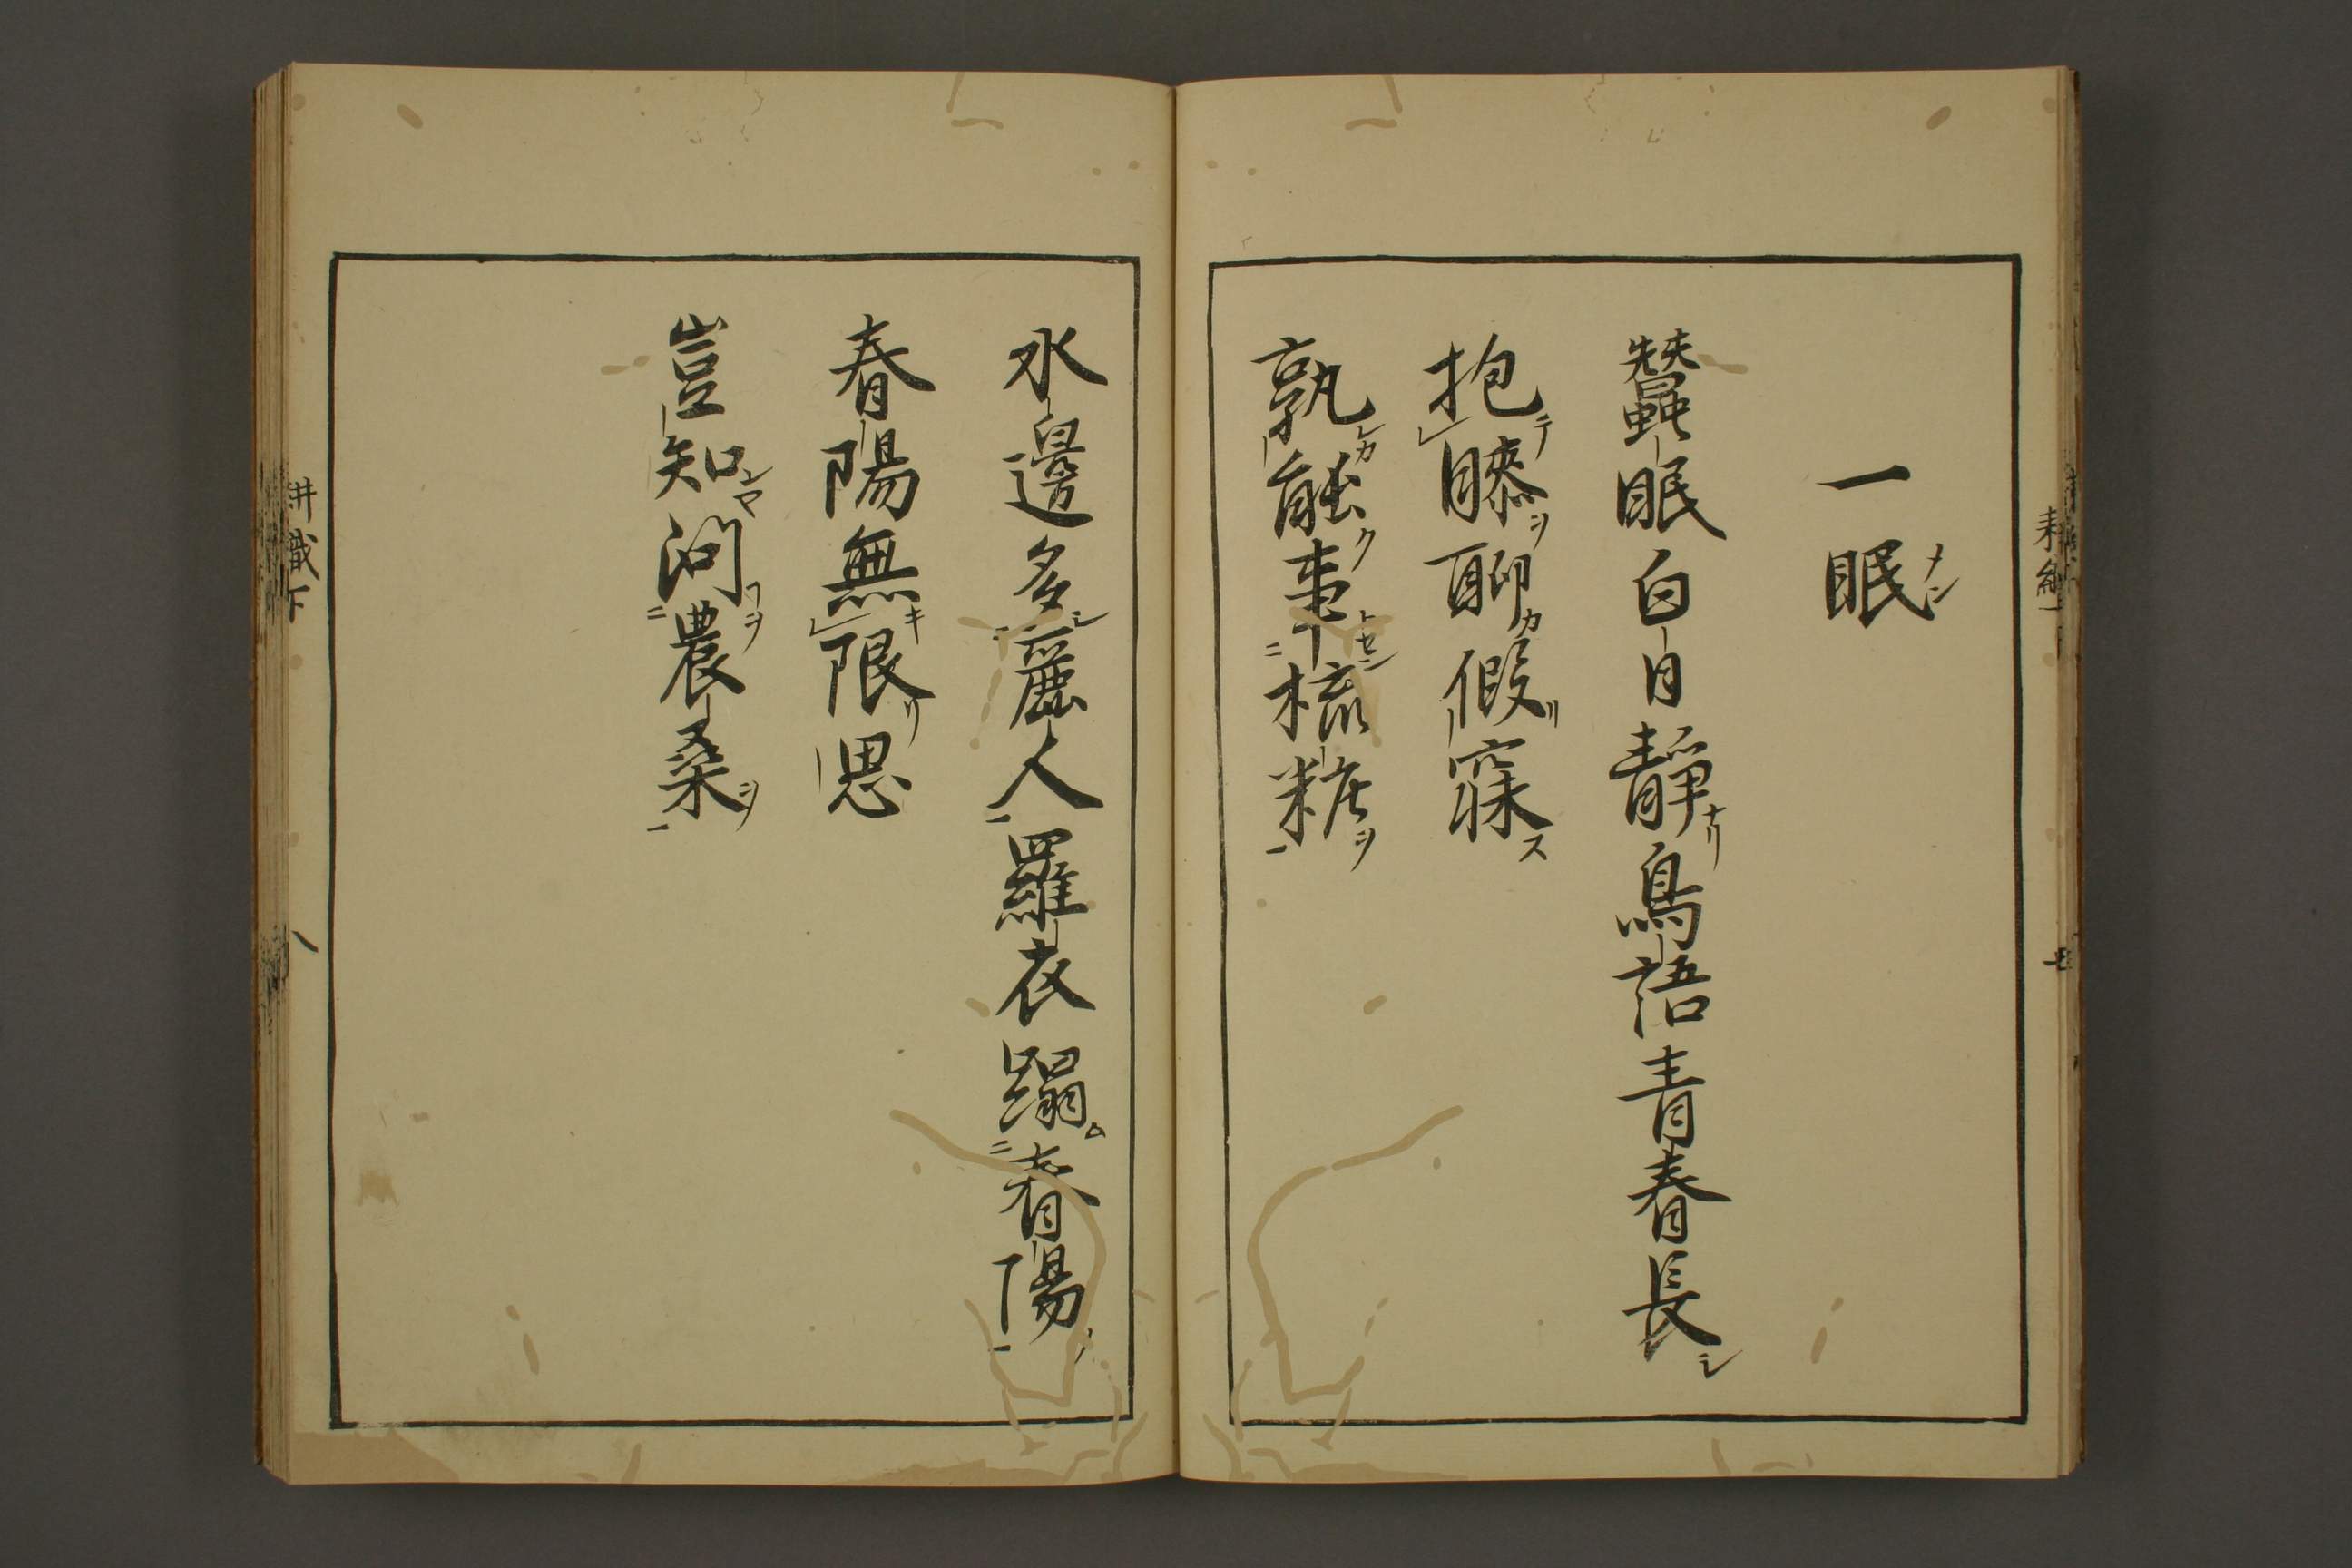 一眠
蠶眠白日靜鳥語青春長
抱膝聊假寐
孰能事梳粧
水邊多麗人羅衣蹋春陽
春陽無限思
豈知問農桑
耕織下
八
七